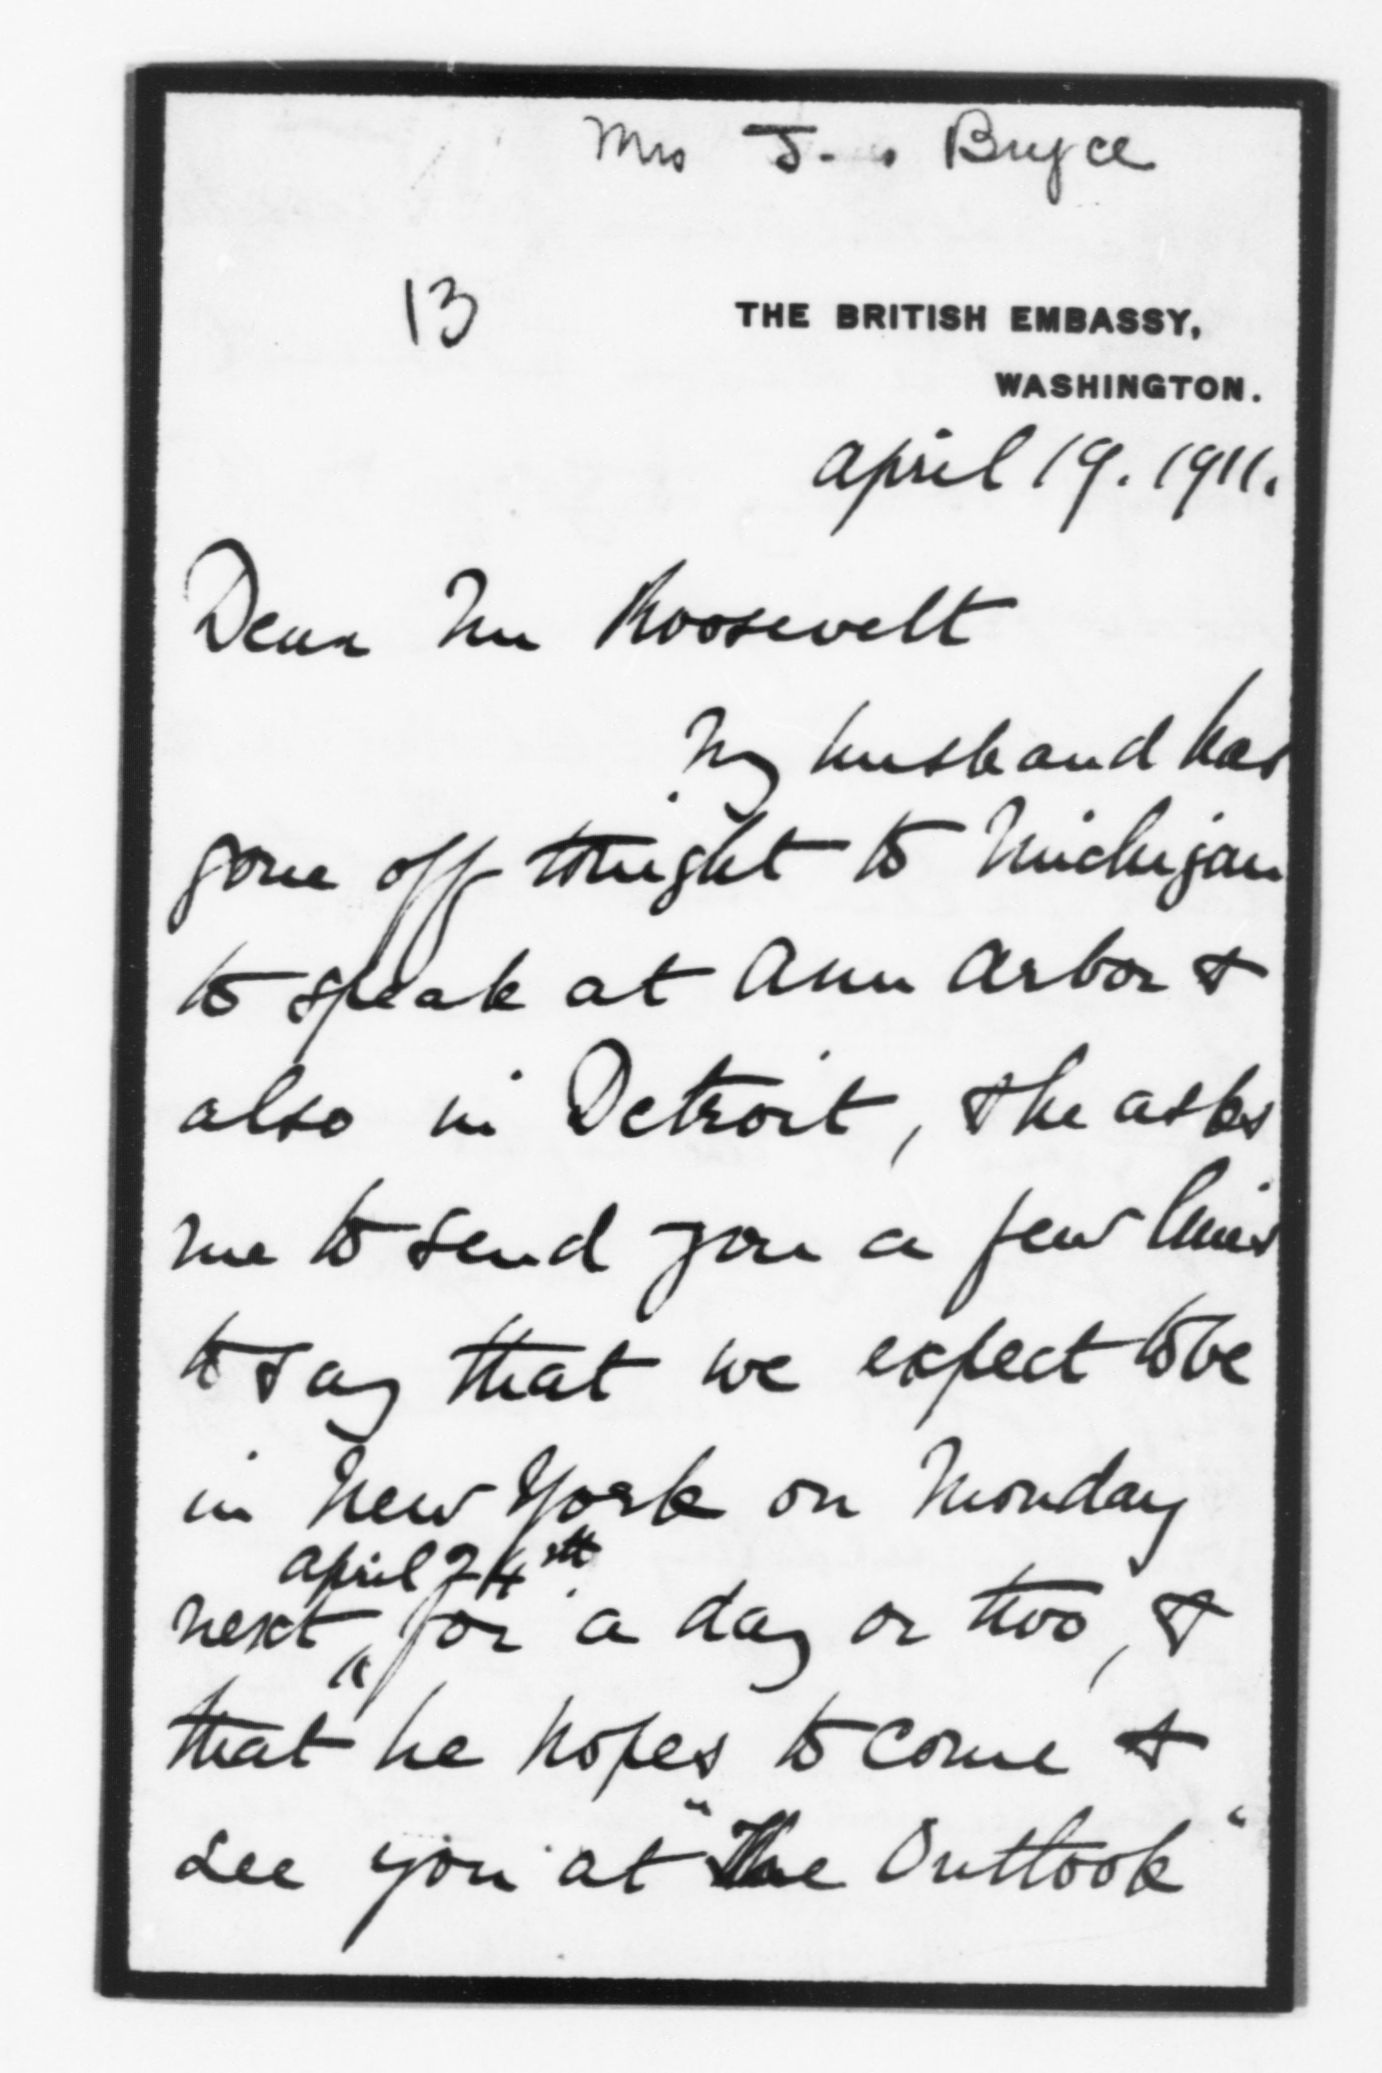 Mrs J. Bryce
13
THE BRITISH EMBASSY,
WASHINGTON.
April 19. 1911.
Dear Mr Roosevelt
My husband has
gone off tonight to Michigan
to speak at Ann Arbor &
also in Detroit, & he asks
me to send you a few lines
to say that we expect to be
in New York on Monday
April 24th.
next, for a day or two, &
that he hopes to come &
see you at "The Outlook"